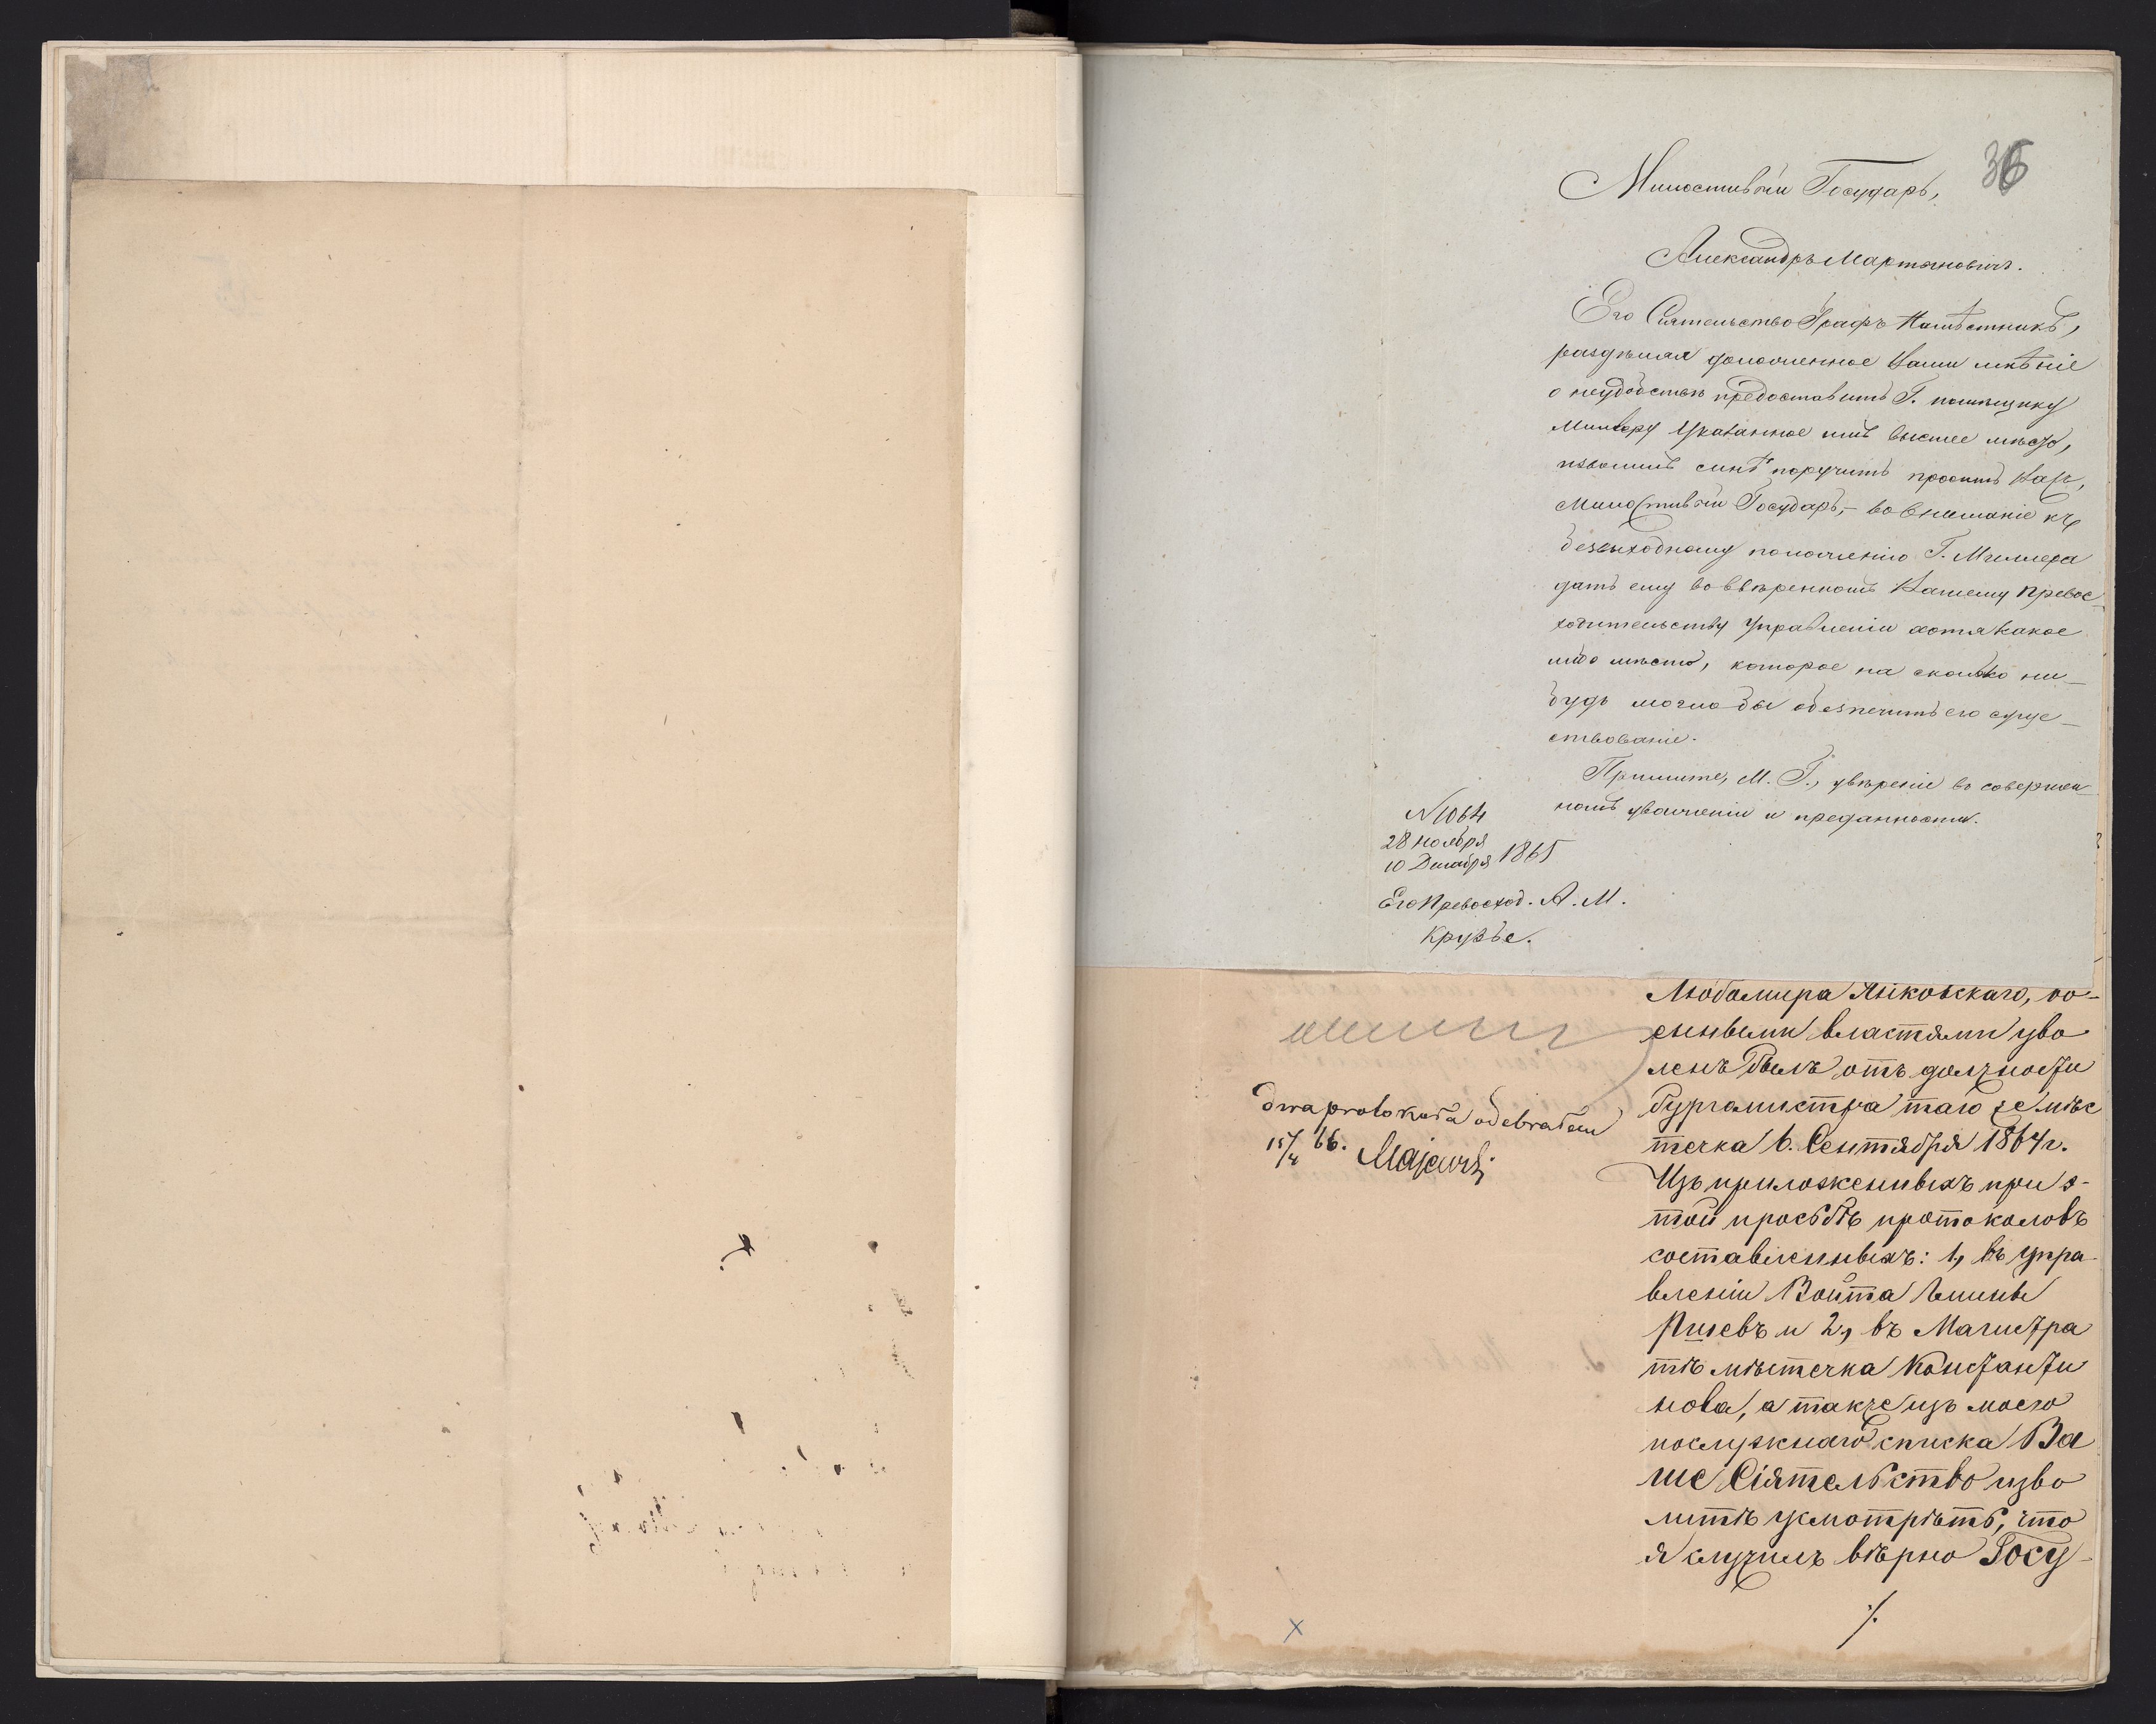 36
Милостивый Государь,
Александръ Мартыновичъ.
Его Сіятельство Графъ Намѣстникъ,
раздѣляя доложенное Вами мнѣніе
о неудобствѣ предоставить Г. помѣщику
Миллеру указанное имъ высшее мѣсто,
изволилъ мнѣ поручить просить Васъ,
Милостивый Государь, – во вниманіе къ
безвыходному положенію Г. Миллера
дать ему во ввѣренномъ Вашему Превос-
ходительству Управленіи хотя какое
либо мѣсто, которое на сколько ни-
будь могло бы обезпечить его суще-
ствованіе.
Примите, М. Г., увѣреніе въ совершен-
номъ уваженіи и преданности.
N 1064
28 Ноября
10 Декабря 1865
Его Превосход. А. М.
Крузе.
Любомира Яньковскаго, во-
енными властями уво
ленъ былъ отъ должности
бургомистра того же мѣс
течка 6. Сентября 1864 г.
Изъ приложенныхъ при э-
той просьбѣ протоколовъ
составленныхъ: 1, въ Упра-
вленіи Войта Гмины
и 2, въ Магистра
тѣ мѣстечка Константи
нова, а также изъ моего
послужнаго списка Ва
ше Сіятельство изво
литъ усмотрѣть, что
я служилъ вѣрно Госу-
./.
dwa protokoła odebrałem
15/4 66. Majewski
x